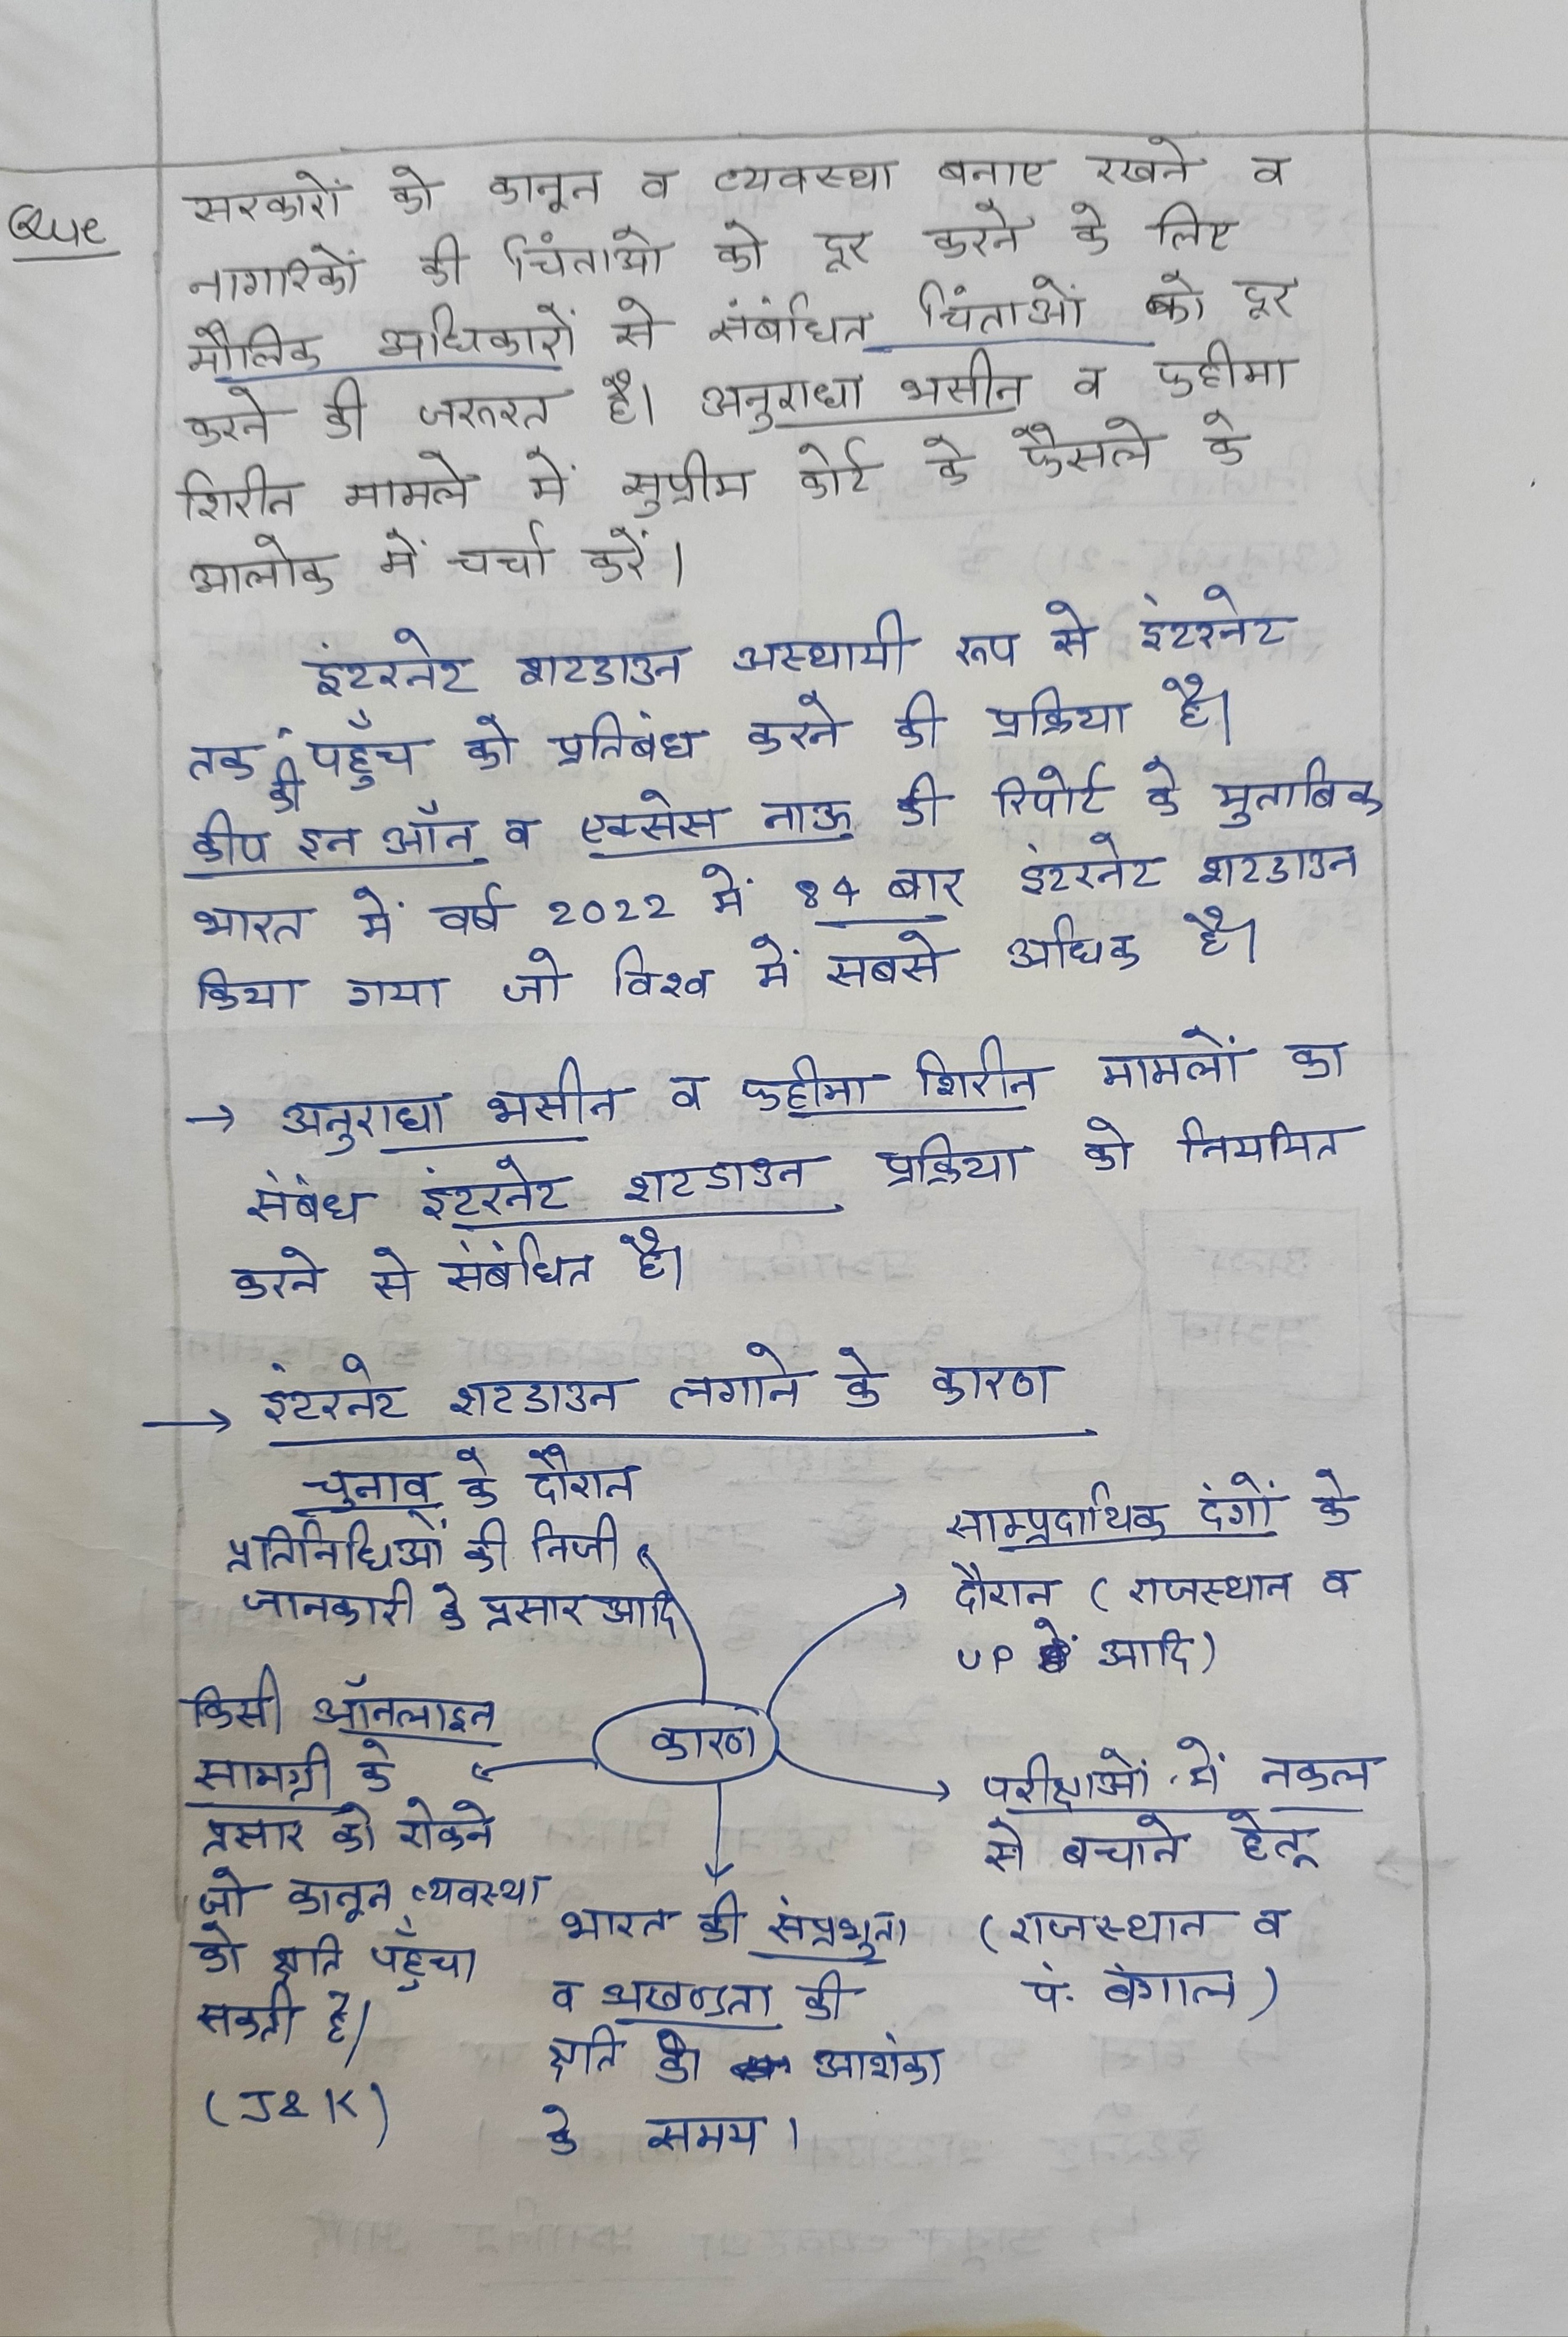 Que
सरकारों को कानून व व्यवस्था बनाए रखने व
नागरिकों की चिंताओ को दूर करने के लिए
मौलिक अधिकारों से संबंधित चिंताओं को दूर
करने की जरूरत है। अनुराधा भसीन व फहीमा
शिरीन मामले में सुप्रीम कोर्ट के फैसले के
आलोक में चर्चा करें।
इंटरनेट शटडाउन अस्थायी रूप से इंटरनेट
तक की पहुँच को प्रतिबंध करने की प्रक्रिया है।
कीप इन ऑन व एक्सेस नाऊ की रिपोर्ट के मुताबिक
भारत में वर्ष 2022 में 84 बार इंटरनेट शटडाउन
किया गया जो विश्व में सबसे अधिक है।
→ अनुराधा भसीन व फहीमा शिरीन मामलों का
संबंध इंटरनेट शटडाउन प्रक्रिया को नियमित
करने से संबंधित है।
→ इंटरनेट शटडाउन लगाने के कारण
चुनाव के दौरान
प्रतिनिधिओं की निजी
जानकारी के प्रसार आदि
साम्प्रदायिक दंगों के
दौरान ( राजस्थान व
UP आदि)
कारण
किसी ऑनलाइन
सामग्री के
प्रसार को रोकने
जो कानून व्यवस्था
को क्षति पहुँचा
सकती है।
(J&K)
भारत की संप्रभुता
व अखण्डता की
क्षति की आशंका
के समय।
परीक्षाओं में नकल
से बचाने हेतू
(राजस्थान व
पं. बंगाल)